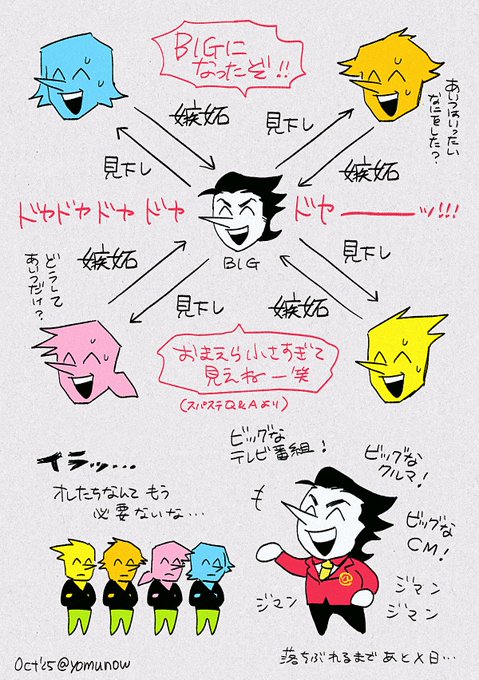 BIGに
なったぞ!!
あいつはいったい
なにをした?
嫉妬
見下し
見下し
嫉妬
ドヤドヤドヤ ドヤ
ドヤーーッ!!!
BIG
どうして
あいつだけ?
嫉妬
見下し
見下し
嫉妬
おまえら小さすぎて
見えねー笑
(スパステQ&Aより)
イラッ…
オレたちなんて もう
必要ないな…
ビッグな
テレビ番組!
ビッグな
クルマ!
も
ビッグな
CM!
ジマン
ジマン
ジマン
Oct'25@yomunow
落ちぶれるまで あと×日…